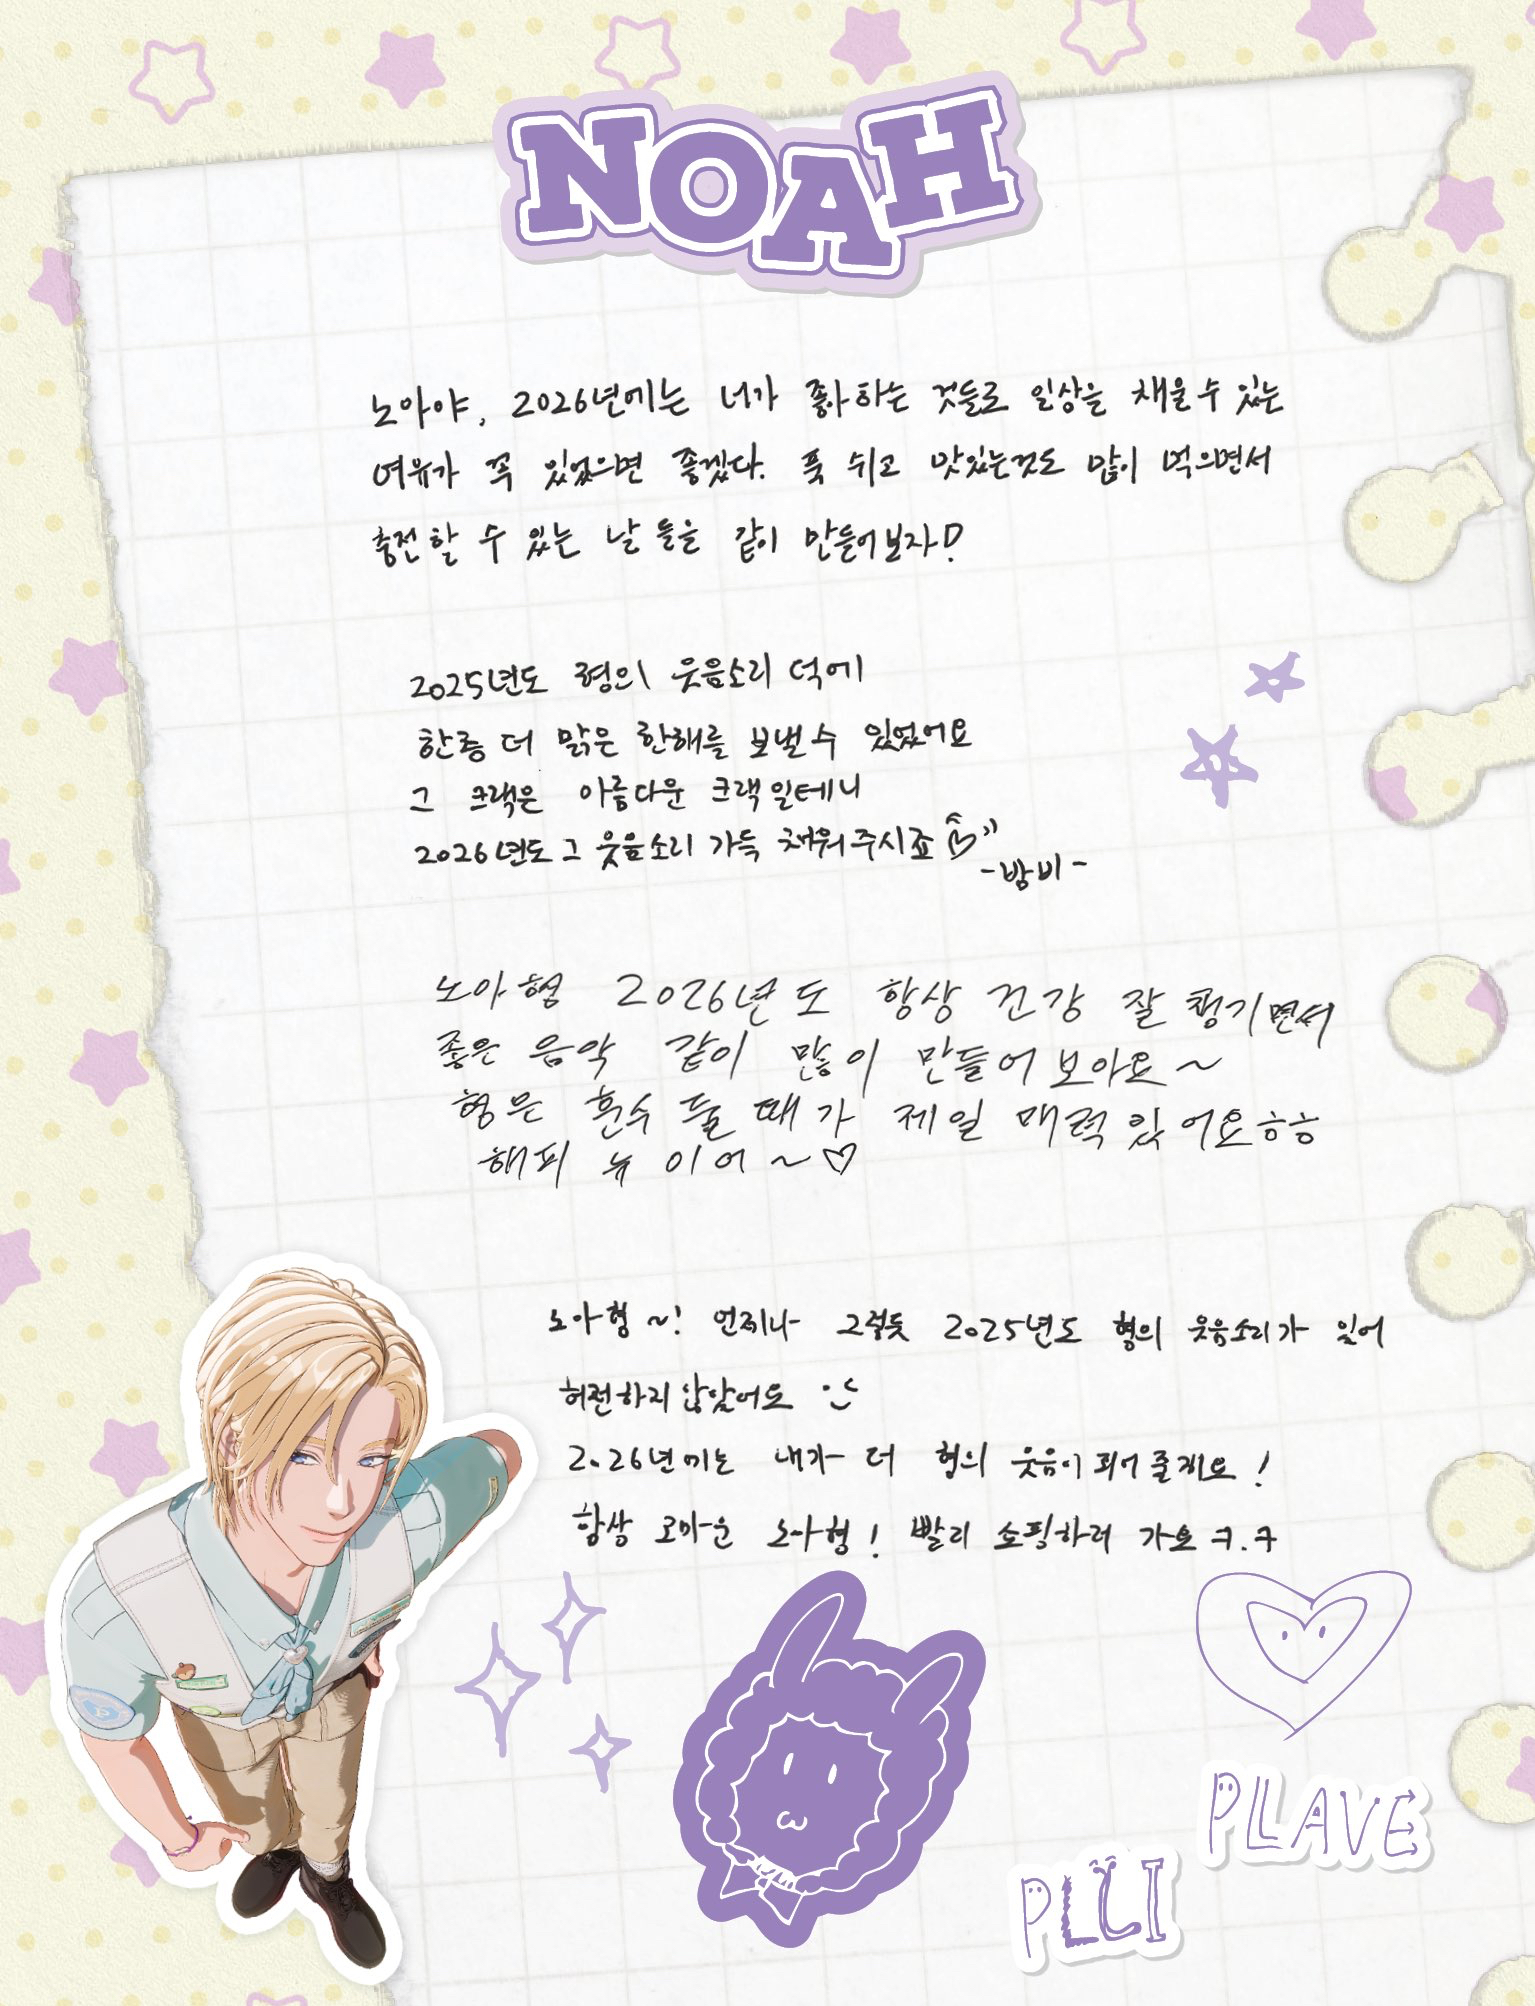 NOAH
노아야, 2026년에는 너가 좋아하는 것들로 일상을 채울 수 있는
여유가 꼭 있었으면 좋겠다. 푹 쉬고 맛있는것도 많이 먹으면서
충전할 수 있는 날들을 같이 만들어보자!
2025년도 형의 웃음소리 덕에
한층 더 맑은 한해를 보낼 수 있었어요
그 크랙은 아름다운 크랙일테니
2026년도 그 웃음소리 가득 채워주시죠
-밤비-
노아형 2026년도 항상 건강 잘 챙기면서
좋은 음악 같이 많이 만들어 보아요~
형은 훈수 둘 때가 제일 매력있어요ㅎㅎ
해피 뉴 이어~♡
노아형~! 언제나 그렇듯 2025년도 형의 웃음소리가 있어
허전하지 않았어요
2026년에는 내가 더 형의 웃음이 되어줄게요!
항상 고마운 노아형! 빨리 쇼핑하러 가요 ㅋ.ㅋ
PLAVE
PLLI